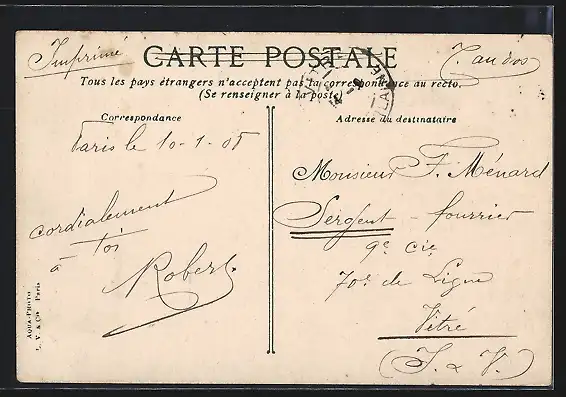 Imprimé
CARTE POSTALE
T. au dos
Tous les pays étrangers n'acceptent pas la correspondance au recto.
(Se renseigner à la poste)
Correspondance
Adresse du destinataire
Paris le 10-1-05
cordialement
à toi
Robert
Monsieur F. Ménard
Sergent-fourrier
9e Cie
70e de Ligne
Vitré
(I. & V.)
AQUA-PHOTO
L. V. & Cie Paris